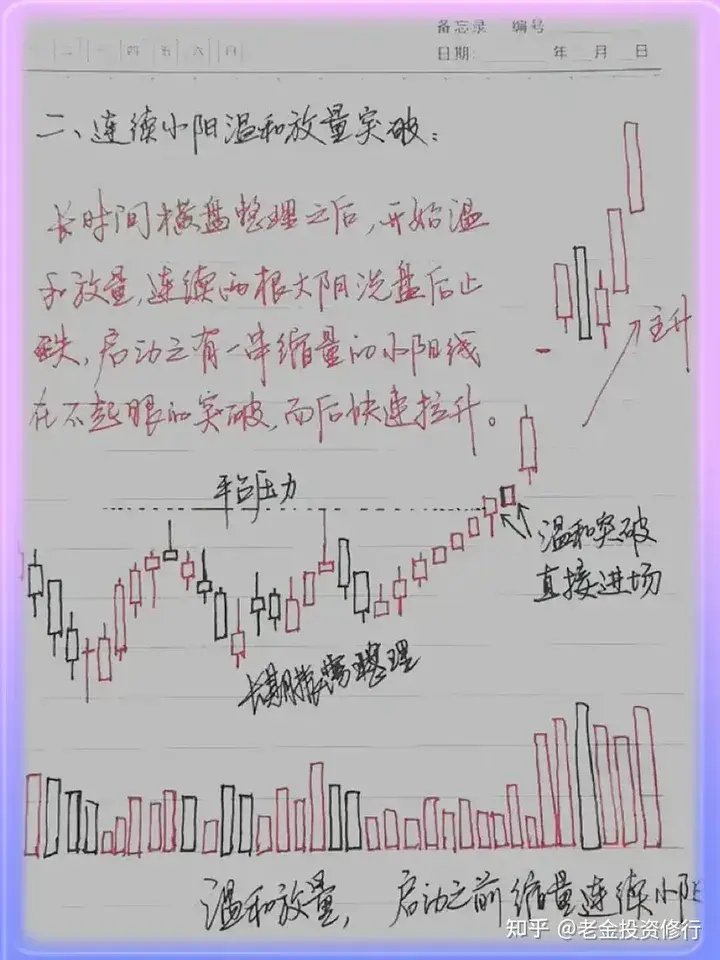 备忘录 编号
一 二 三 四 五 六 日
日期: 年 月 日
二、连续小阳温和放量突破:
长时间横盘整理之后,开始温
和放量,连续两根大阴洗盘后止
跌,启动之有一串缩量的小阳线
在不起眼的突破,而后快速拉升。
主升
平台压力
温和突破
直接进场
长期横盘整理
温和放量, 启动之前缩量连续小阳
知乎 @老金投资修行